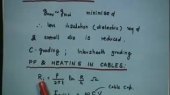 gmax - gmin minimised
∴ less insulation (dielectric) reqd
& overall dia is reduced.
C-grading; Intersheath grading
PF & HEATING IN CABLES.
Ri = ρ/2πl ln R/r Ω